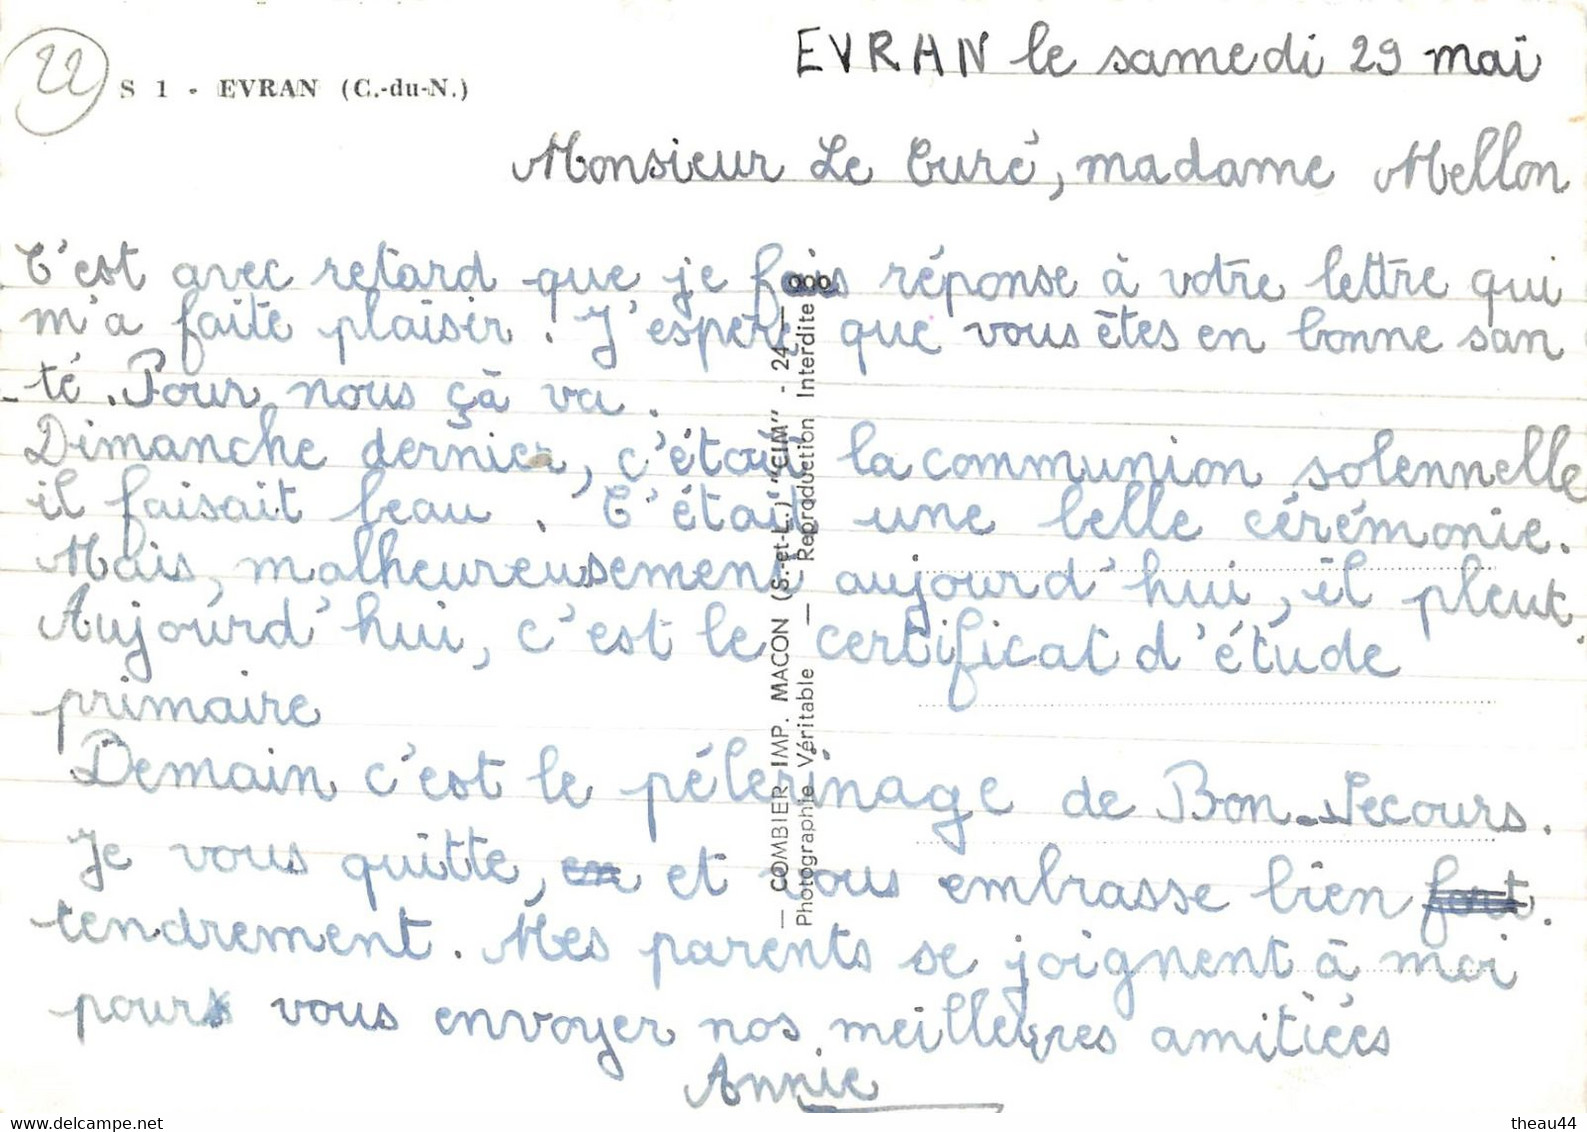 22
S 1 - EVRAN (C.-du-N.)
EVRAN le samedi 29 mai
Monsieur Le Curé, madame Mellon
C'est avec retard que je fais réponse à votre lettre qui
m'a faite plaisir. J'espère que vous êtes en bonne san
-té. Pour nous çà va.
Dimanche dernier, c'était la communion solennelle
il faisait beau. C'était une belle cérémonie.
Mais, malheureusement aujourd'hui, il pleut.
Aujourd'hui, c'est le certificat d'étude
primaire
Demain c'est le pélerinage de Bon-Secours.
Je vous quitte, et vous embrasse bien
tendrement. Mes parents se joignent à moi
pour vous envoyer nos meilleures amitiées
Annie
— COMBIER IMP. MACON (S.-et-L.) "CIM" - 24 —
Photographie Véritable — Reproduction Interdite
delcampe.net
theau44